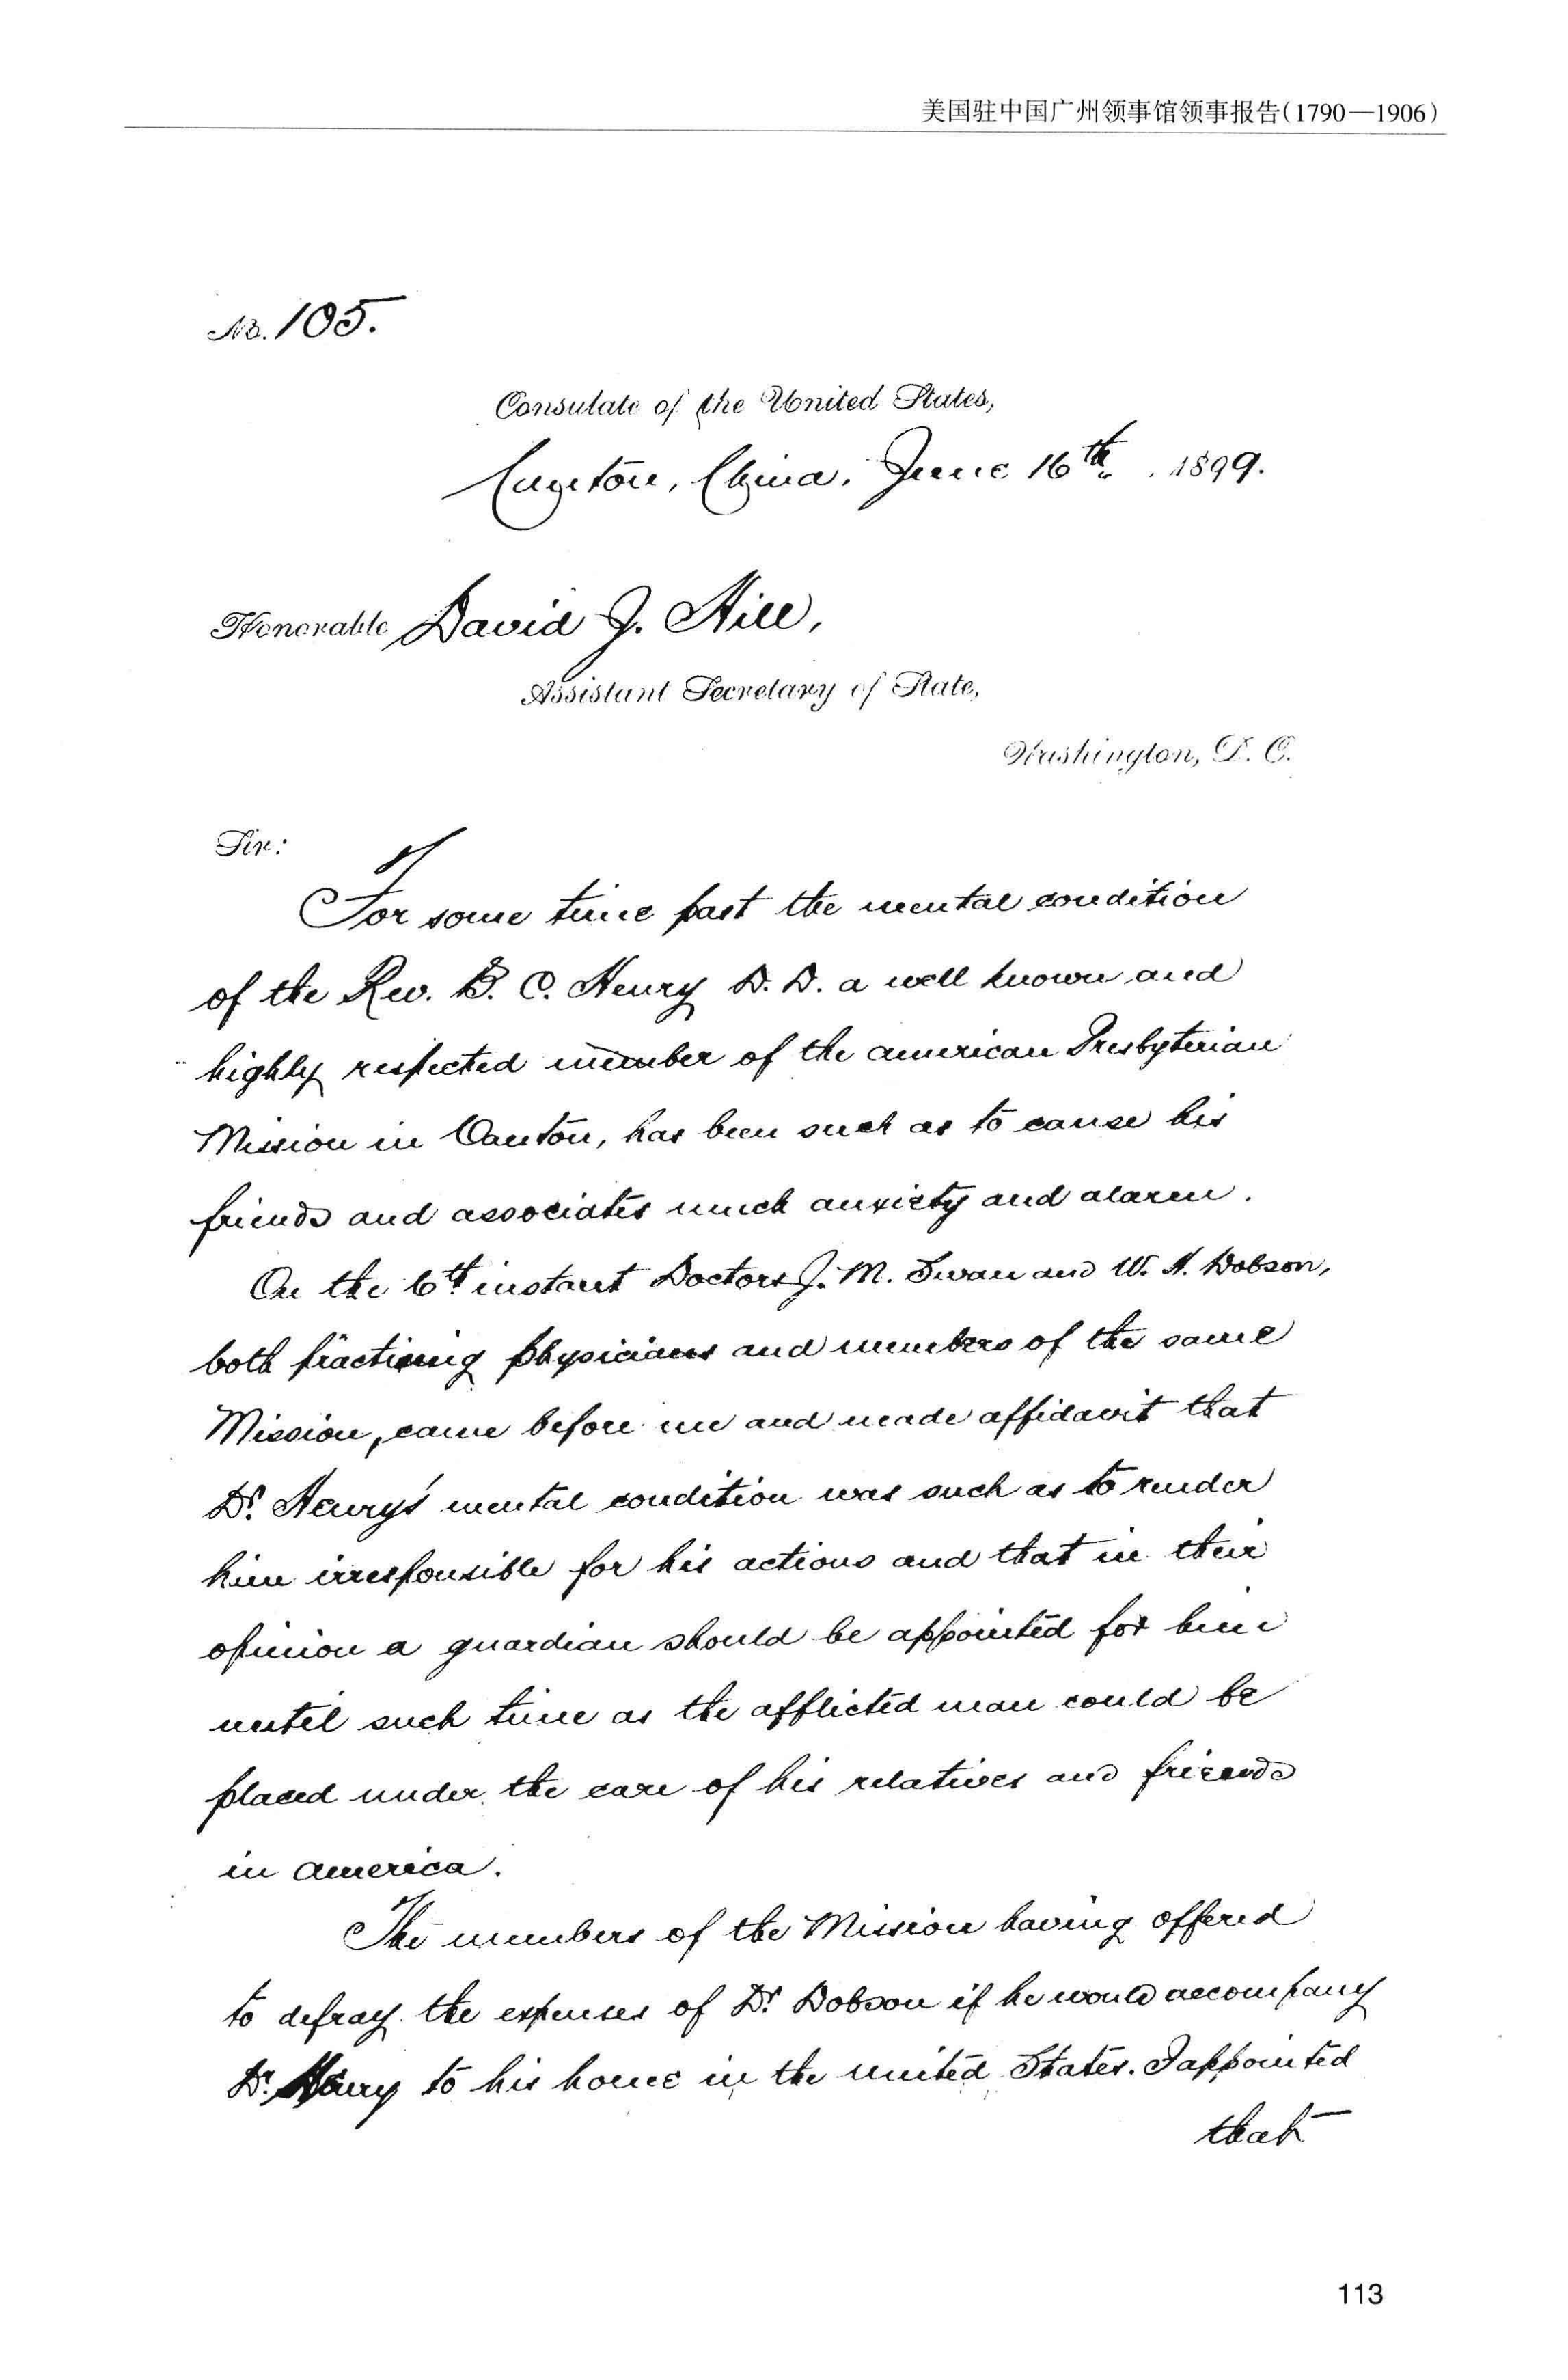 美国驻中国广州领事馆领事报告(1790—1906)
No. 105.
Consulate of the United States,
Canton, China, June 16th. 1899.
Honorable David J. Hill,
Assistant Secretary of State,
Washington, D. C.
Sir:
For some time past the mental condition
of the Rev. B. C. Henry D. D. a well known and
highly respected member of the american Presbyterian
Mission in Canton, has been such as to cause his
friends and associates much anxiety and alarm.
On the 6th instant Doctors J. M. Swan and W. H. Dobson,
both practising physicians and members of the same
Mission, came before me and made affidavit that
Dr. Henry's mental condition was such as to render
him irresponsible for his actions and that in their
opinion a guardian should be appointed for him
until such time as the afflicted man could be
placed under the care of his relatives and friends
in america.
The members of the Mission having offered
to defray the expenses of Dr. Dobson if he would accompany
Dr. Henry to his home in the united States. I appointed
that
113